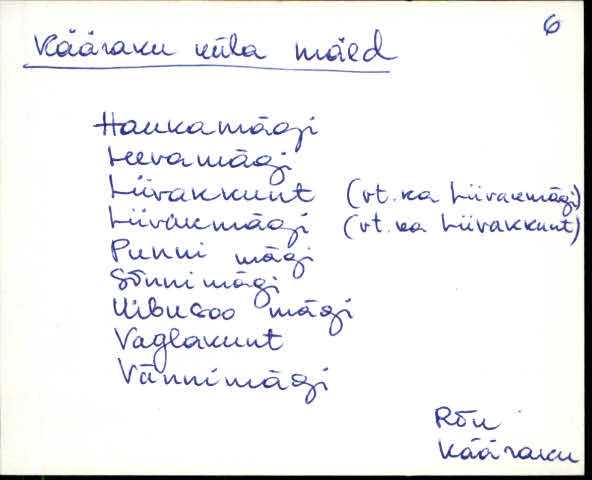 6
Kääraku küla mäed
Haukamägi
Leevamägi
Liivakkunt (vt. ka Liivakmägi)
Liivakmägi (vt. ka Liivakkunt)
Punni mägi
Sõnnimägi
Uibusoo mägi
Vaglakunt
Vännimägi
Rõu
Kääraku